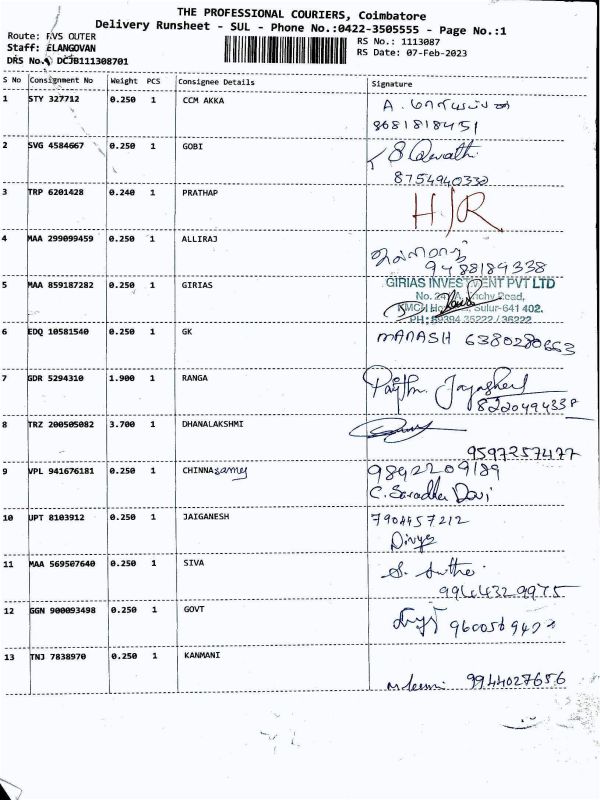 THE PROFESSIONAL COURIERS, Coimbatore
Delivery Runsheet - SUL - Phone No.:0422-3505555 - Page No.:1
Route: RVS OUTER
RS No.: 1113087
Staff: ELANGOVAN
RS Date: 07-Feb-2023
DRS No. DCJB111308701
S No Consignment No Weight PCS Consignee Details Signature
1 STY 327712 0.250 1 CCM AKKA
8681818451
2 SVG 4584667 0.250 1 GOBI
8754940330
3 TRP 6201428 0.240 1 PRATHAP
4 MAA 299099459 0.250 1 ALLIRAJ
9488184338
5 MAA 859187282 0.250 1 GIRIAS GIRIAS INVESTMENT PVT LTD
Sulur-641 402.
PH: 89394 35222 / 36222
6 EDQ 10581540 0.250 1 GK MANASH 6380280663
7 GDR 5294310 1.900 1 RANGA
8 TRZ 200505082 3.700 1 DHANALAKSHMI
9597257477
9 VPL 941676181 0.250 1 CHINNAsamy 9842209189
10 UPT 8103912 0.250 1 JAIGANESH 7904457212
Divya
11 MAA 569507640 0.250 1 SIVA
12 GGN 900093498 0.250 1 GOVT
13 TNJ 7838970 0.250 1 KANMANI
9944027656